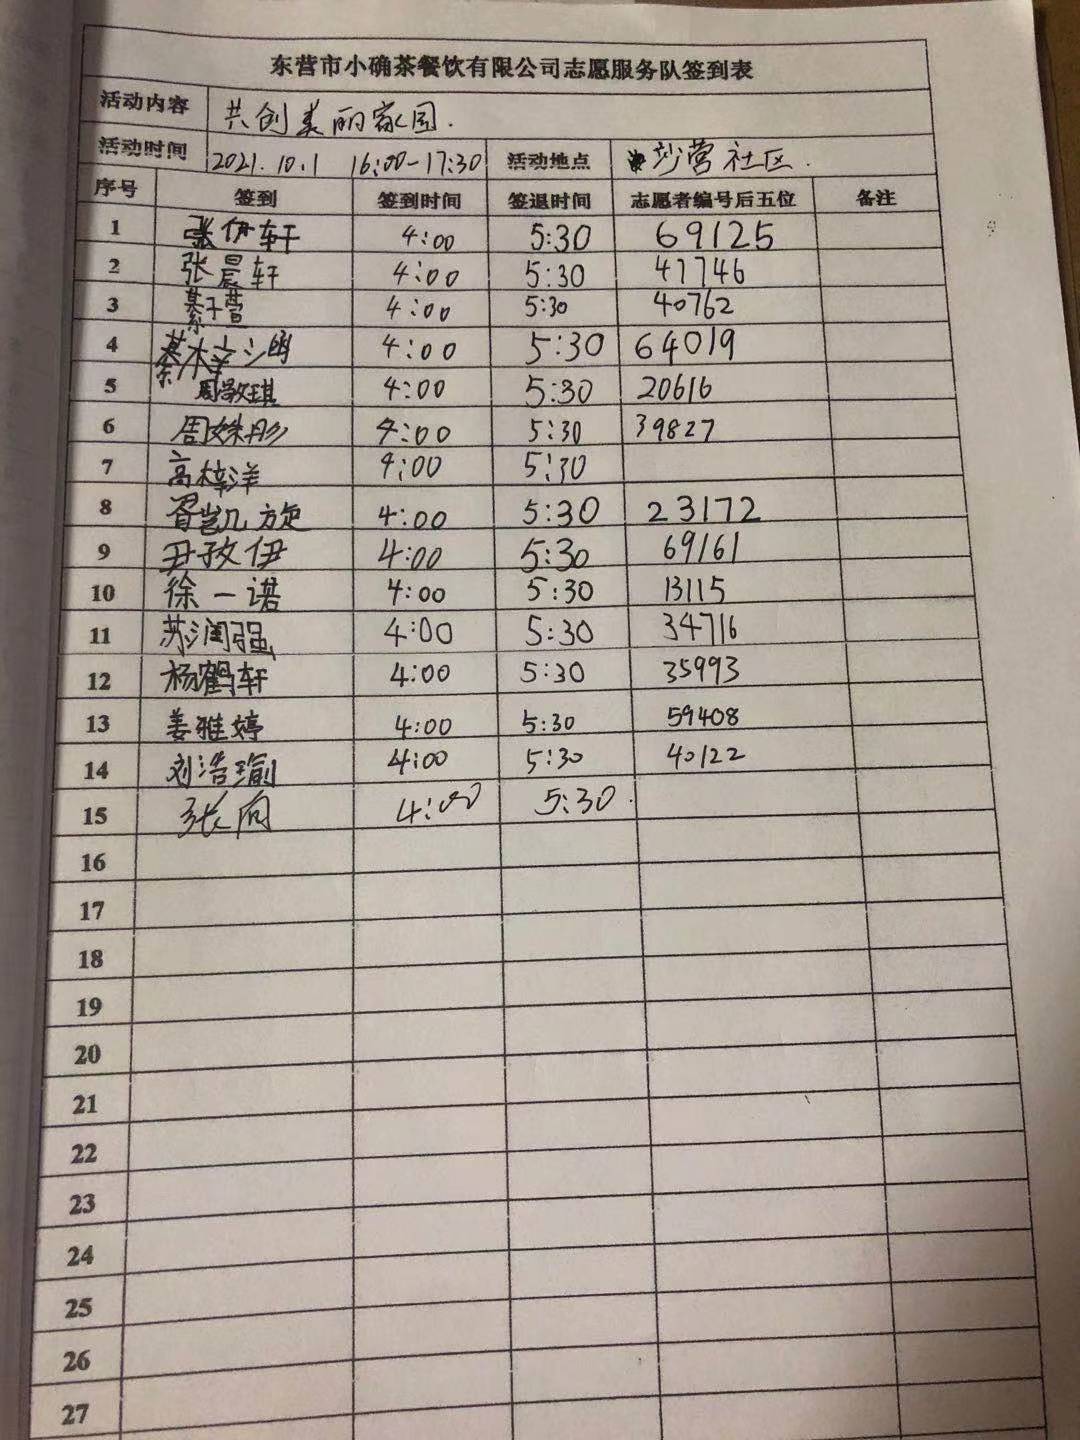 东营市小确茶餐饮有限公司志愿服务队签到表
活动内容 共创美丽家园.
活动时间 2021.10.1 16:00-17:30 活动地点 沙营社区.
序号 签到 签到时间 签退时间 志愿者编号后五位 备注
1 张伊轩 4:00 5:30 69125
2 张晨轩 4:00 5:30 47746
3 綦子萱 4:00 5:30 40762
4 4:00 5:30 64019
5 周敬琪 4:00 5:30 20616
6 周姝彤 4:00 5:30 39827
7 高梓洋 4:00 5:30
8 胥凯旋 4:00 5:30 23172
9 尹孜伊 4:00 5:30 69161
10 徐一诺 4:00 5:30 13115
11 苏润强 4:00 5:30 34716
12 杨鹤轩 4:00 5:30 35993
13 姜雅婷 4:00 5:30 59408
14 刘浩瑜 4:00 5:30 40122
15 张向 4:00 5:30.
16
17
18
19
20
21
22
23
24
25
26
27